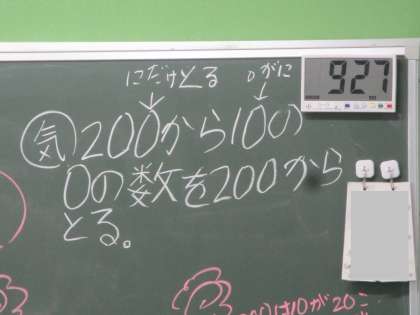 にだけとる
0がに
927
気 200から100の
0の数を200から
とる。
200は10が20こ